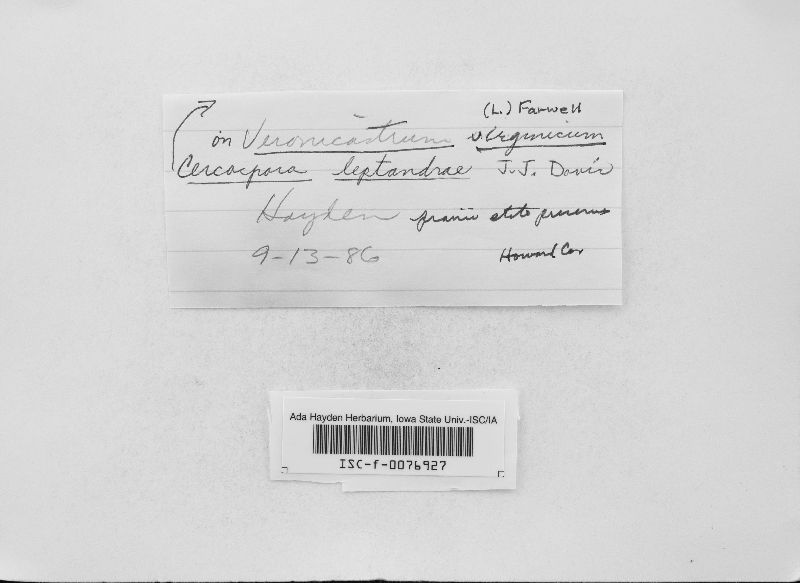 (L.) Farwell
on Veronicastrum virginicum
Cercospora leptandrae J.J. Davis
Hayden prairie state preserve
9-13-86 Howard Co.
Ada Hayden Herbarium, Iowa State Univ.-ISC/IA
ISC-f-0076927